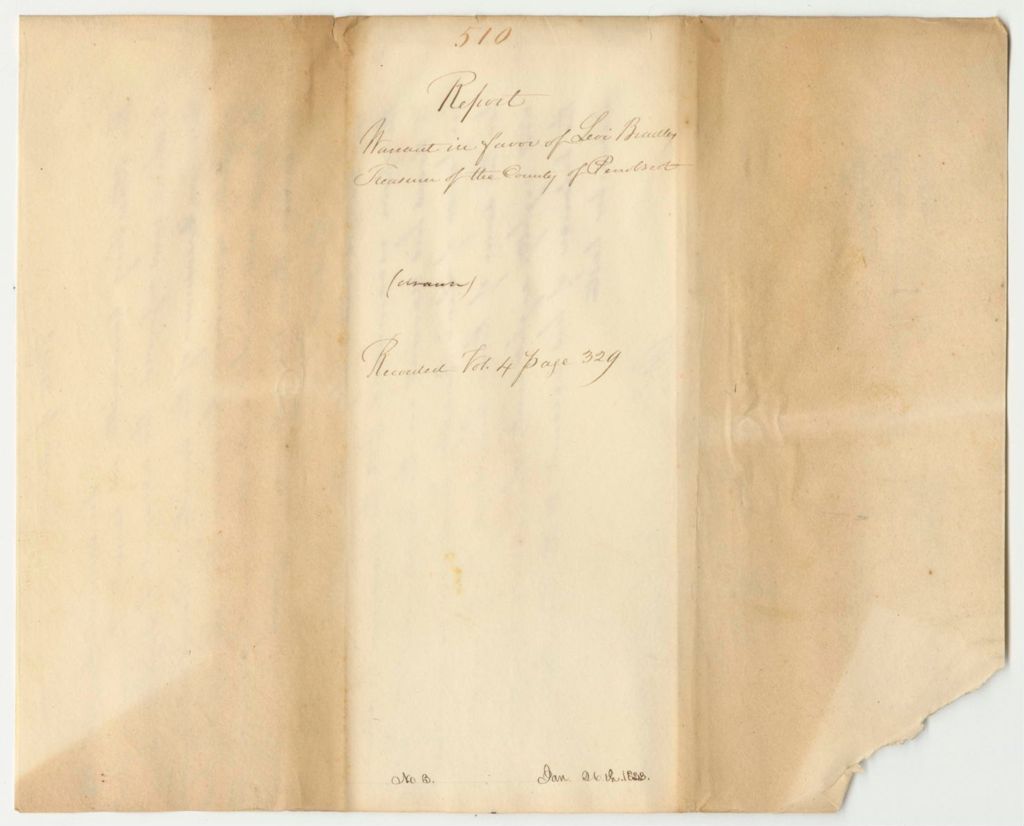 510
Report
Warrant in favor of Levi Bradley
Treasurer of the County of Penobscot
(drawn)
Recorded Vol. 4 page 329
No 3. Jan 26th 1828.